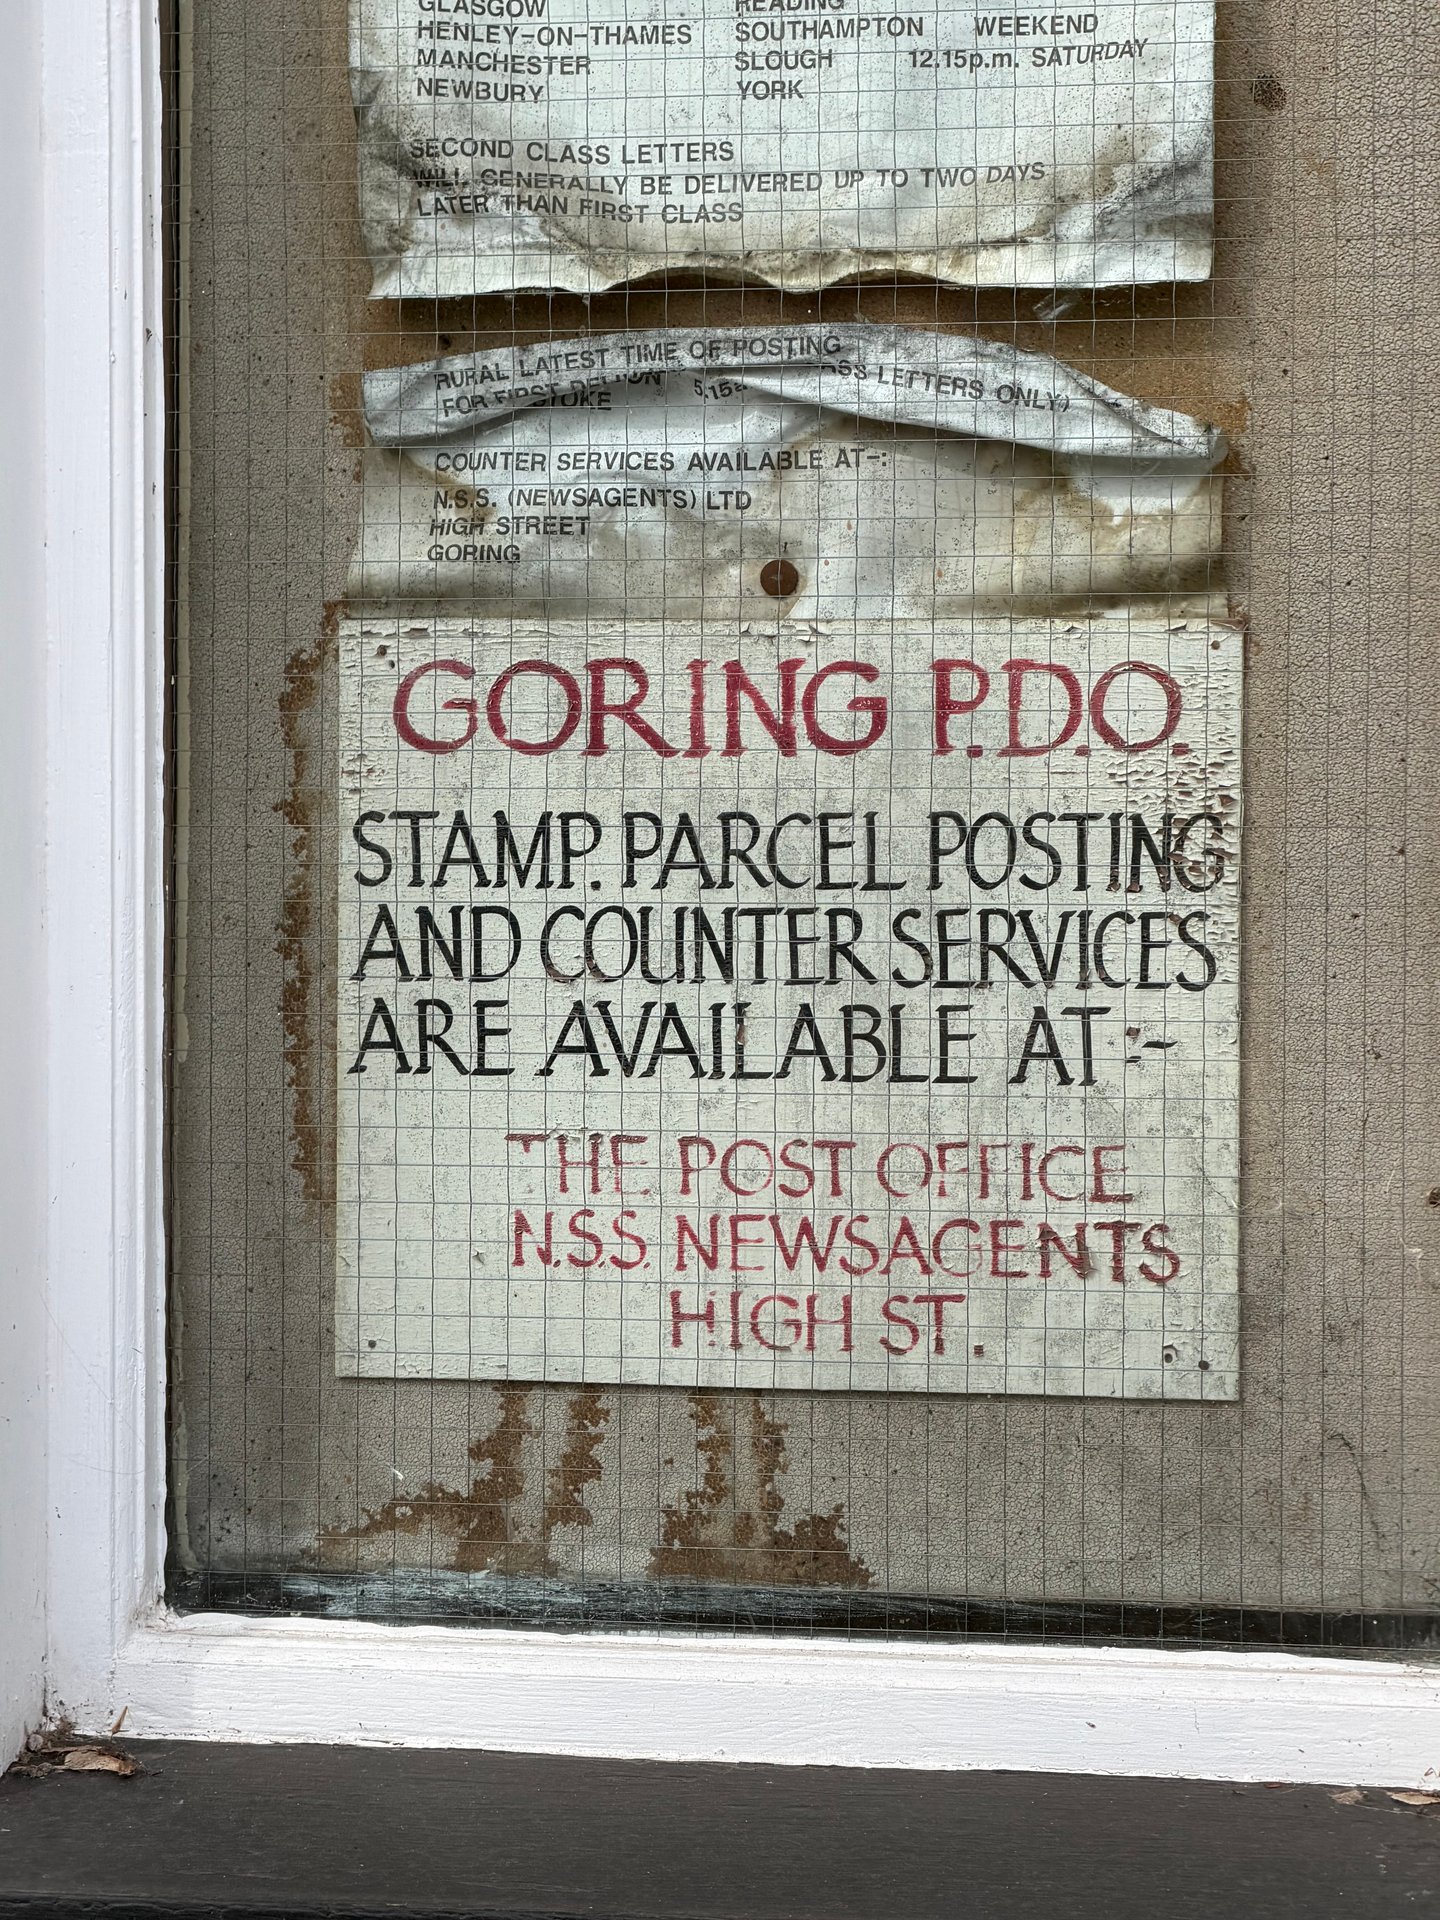 GLASGOW READING
HENLEY-ON-THAMES SOUTHAMPTON WEEKEND
MANCHESTER SLOUGH 12.15p.m. SATURDAY
NEWBURY YORK
SECOND CLASS LETTERS
WILL GENERALLY BE DELIVERED UP TO TWO DAYS
LATER THAN FIRST CLASS
RURAL LATEST TIME OF POSTING
FOR FIRST 5.15 LETTERS ONLY)
COUNTER SERVICES AVAILABLE AT-:
N.S.S. (NEWSAGENTS) LTD
HIGH STREET
GORING
GORING P.D.O.
STAMP. PARCEL POSTING
AND COUNTER SERVICES
ARE AVAILABLE AT :-
THE POST OFFICE
N.S.S. NEWSAGENTS
HIGH ST.